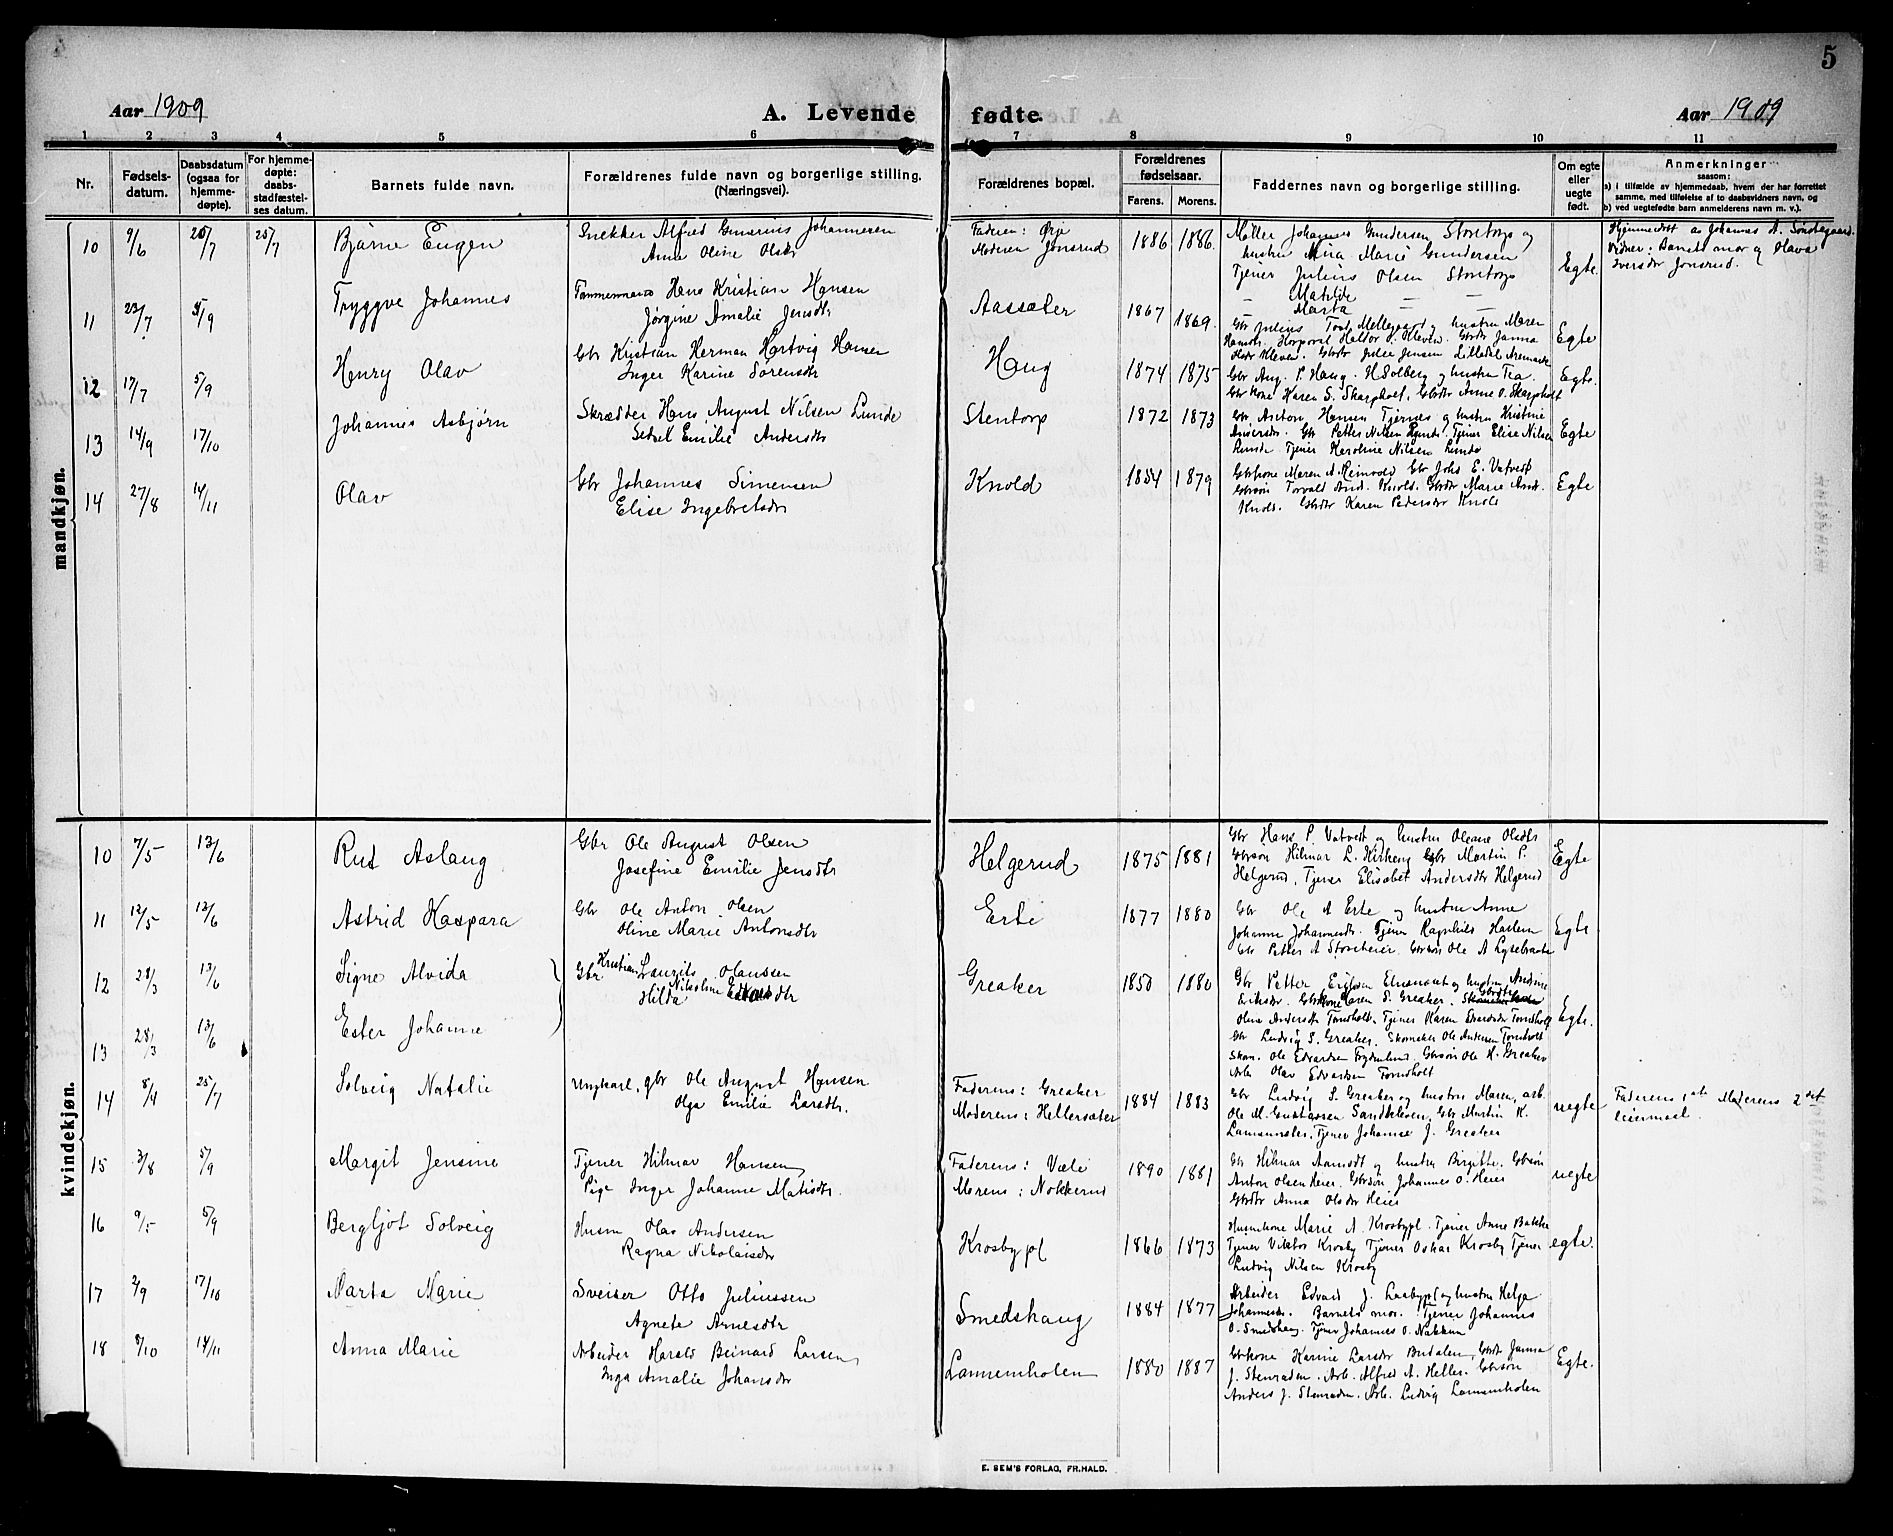 5
Aar 1909 A. Levende fødte. Aar 1909
1 2 3 4 5 6 7 8 9 10 11
Nr. Fødselsdatum. Daabsdatum (ogsaa for hjemmedøpte). For hjemmedøpte: daabsstadfæstelses datum. Barnets fulde navn. Forældrenes fulde navn og borgerlige stilling. (Næringsvei). Forældrenes bopæl. Forældrenes fødselsaar. Farens. Morens. Faddernes navn og borgerlige stilling. Om egte eller uegte født. Anmerkninger saasom: a) i tilfælde av hjemmedaab, hvem der har forrettet samme, med tilføielse af to daabsvidners navn, og b) ved uegtefødte barn anmelderens navn m. v.).
mandkjøn.
10 9/6 25/7 25/7 Bjarne Eugen Snekker Alfred Gunerius Johannesen Faderen: Ørje 1886 1886. Møller Johannes Gundersen Stentorp og Egte. Hjemmedøbt av Johannes A. Søndegaard.
Anna Oline Olsdr Moderen Jonsrud hustru Mina Marie Gundersen Vidner: Barnets mor og Olava
Tjener Julius Olsen Stentorp Iversdr Jonsrud.
— Matilde — —
— Marta — —
11 22/7 5/9 Tryggve Johannes Tømmermand Hans Kristian Hansen Aassæter 1867 1869. Gbr Julius Mellegaard og hustru Maren Egte
Jørgine Amalie Jensdtr Korporal Haldor O. Kleven. Gbrdtr Janna
Kleven. Gbrdtr Julie Jensen Lilledal Aremark
12 17/7 5/9 Henry Olav Gbr Kristian Herman Hartvig Hansen Haug 1874 1875 Gbr Aug. P. Haug. H. Solberg og hustru Tea. Egte.
Inger Karine Sørensdtr Gbrkone Karen S. Skarpholt, Gbrdtr Anne O. Skarpholt
13 14/9 17/10 Johannes Asbjørn Skrædder Hans August Nilsen Lunde Stentorp 1872 1873 Gbr. Anton Hansen Tjernes og hustru Kristine Egte
Sedsel Emilie Andersdtr Andersdtr. Gbr Petter Nilsen Tjener Elise Nilsen
Lunde Tjener Karoline Nilsen Lunde
14 27/8 14/11 Olav Gbr Johannes Simensen Knold 1854 1879 Gbrkone Maren A. Gbr Johs E. Vatvedt Egte
Elise Ingebretsdr Gbrsøn Torvald And. Knold. Gbrdtr Marie And.
Knold. Gbrdtr Karen Pedersdtr Knold
kvindekjøn.
10 7/5 13/6 Rut Aslaug Gbr Ole August Olsen Helgerud 1875 1881 Gbr Hans P. Vatvedt og hustru Oleane Olsdtr Egte
Josefine Emilie Jensdtr Gbrsøn Hilmar L. Kirkeng Gbr Martin P.
Helgerud, Tjener Elisabet Andersdtr Helgerud
11 12/5 13/6 Astrid Kaspara Gbr Ole Anton Olsen Erte 1877 1880 Gbr Ole A Erte og hustru Anne Egte
Oline Marie Antonsdtr Johanne Johannesdtr. Tjener Ragnhild
Gbr Petter A Storeheier Gbrsøn Ole A Lysebraate
12 28/3 13/6 Signe Alvida Gbr Kristian Lauritz Olaussen Greaker 1850 1880 Gbr Petter og hustru Andrine Egte.
Hilda Nikoline Edvardsdtr Eriksdr. Gbrkone Maren S. Greaker.
13 28/3 13/6 Ester Johanne Oline Andersdtr Tondholt. Tjener Karen Edvardsdr Tondholt
Gbr Ludvig S. Greaker. Skomaker Ole Andersen Tondholt
Skom. Ole Edvardsen Gbrsøn Ole H. Greaker
Arb. Olav Edvardsen Tondholt
14 8/4 25/7 Solveig Natalie Ungkarl, gbr Ole August Hansen Faderens: Greaker 1884 1883 Gbr Ludvig S. Greaker og hustru Maren, arb. uegte Faderens 1ste Moderens 2det
Olga Emilie Larsdtr. Moderens: Hellesæter Ole M. Gustavsen Sandkleven, Gbr Martin K. leiermaal.
Lamsunsæter, Tjener Johanne J. Greaker
15 3/8 5/9 Margit Jensine Tjener Hilmar Hansen Faderens: Væli 1890 1881 Gbr Hilmar Aamodt og hustru Birgitte. Gbrsøn uegte
Pige Inger Johanne Matisdtr. Morens: Nokkerud Anton Olsen Heier. Gbrsøn Johannes O. Heier
Gbrdtr Anna Olsdtr Heier
16 9/5 5/9 Bergljot Solveig Husm Olav Andersen Krosbypl 1866 1873 Husmkone Marie A. Krosbypl. Tjener Anne Bakke egte.
Ragna Nikolaisdr Tjener Viktor Krosby Tjener Oskar Krosby Tjener
Ludvig Nilsen Krosby
17 2/9 17/10 Marta Marie Sveiser Otto Juliussen Smedshaug 1884 1877 Arbeider Edvard J. Laabypl og hustru Helga
Agnete Arnesdtr Johannesdr. Barnets mor. Tjener Johannes
O. Smedshaug. Tjener Johannes O. Nakkim
18 8/10 14/11 Anna Marie Arbeider Harald Beinard Larsen Lannemholen 1880 1887 Gbrkone Karine Larsdr Budalen, Gbrdtr Janna Egte.
Inga Amalie Johansdr J. Stenraden. Arb. Alfred A. Heller. Gbrsøn
Anders J. Stenraden, Arb. Ludvig Lannemholen
E. SEM'S FORLAG, FR.HALD.